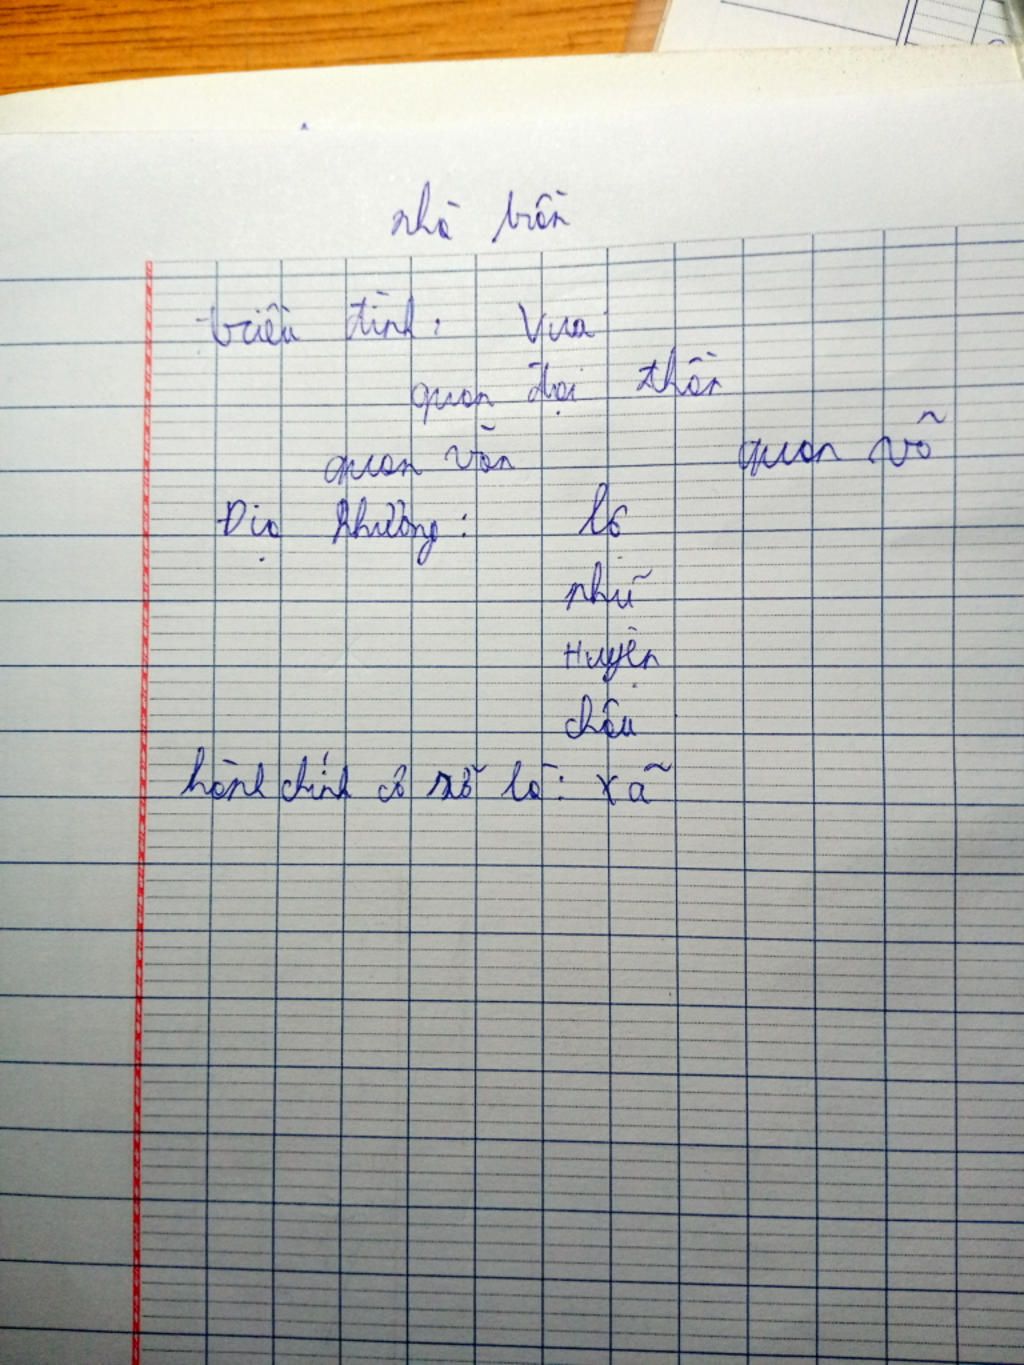 nhà trần
triều đình: Vua
quan đại thần
quan văn quan võ
Địa phương: lộ
phủ
Huyện
châu
hành chính cơ sở là: xã